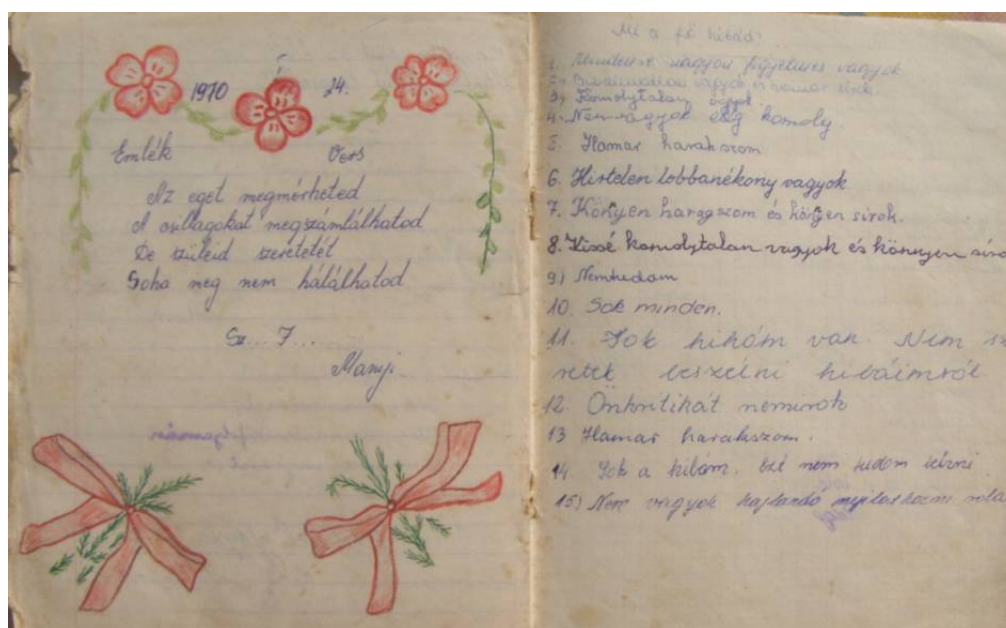 1970 24.
Emlék Vers
Az eget megmérheted
A csillagokat megszámlálhatod
De szüleid szeretetét
Soha meg nem hálálhatod
Sz... J...
Manyi
Mi a fő hibád?
1. Mindenre nagyon figyelmes vagyok
2, vagyok és hamar sírok.
3, Komolytalan vagyok.
4. Nem vagyok elég komoly.
5. Hamar harakszom
6. Hirtelen lobbanékony vagyok
7. Könyen haragszom és könyen sirok.
8. Kissé komolytalan vagyok és könnyen síro
9.) Nemtudom
10. Sok minden.
11. Sok hibám van. Nem sze
retek beszélni hibáimról
12. Önkritikát nemirok
13 Hamar harakszom.
14. Sok a hibám. Ezt nem tudom leírni
15.) Nem vagyok hajlandó nyilatkozni